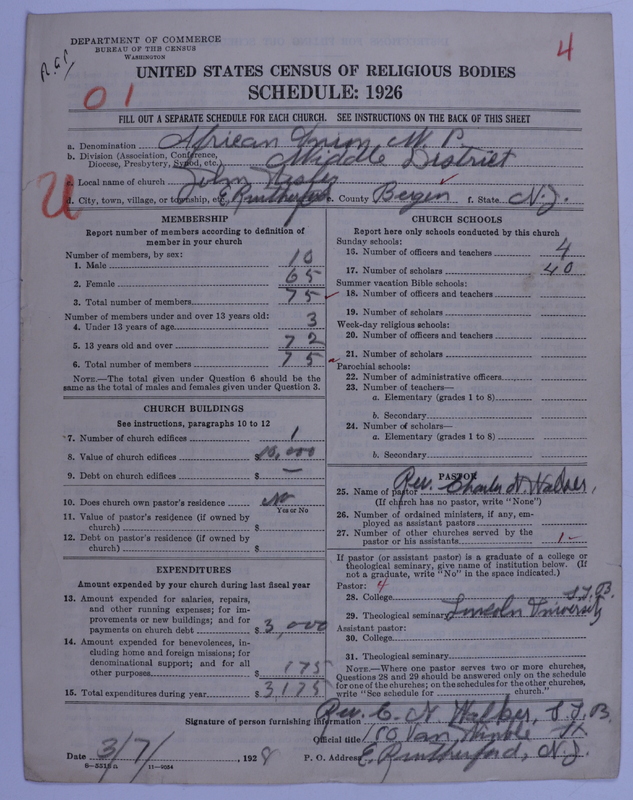 DEPARTMENT OF COMMERCE
BUREAU OF THE CENSUS
WASHINGTON
4
0 1
UNITED STATES CENSUS OF RELIGIOUS BODIES
SCHEDULE: 1926
FILL OUT A SEPARATE SCHEDULE FOR EACH CHURCH. SEE INSTRUCTIONS ON THE BACK OF THIS SHEET
a. Denomination African Union M. P.
b. Division (Association, Conference, Diocese, Presbytery, Synod, etc.) Middle District
c. Local name of church John
d. City, town, village, or township, etc. E. Rutherford e. County Bergen f. State N.J.
U
MEMBERSHIP
Report number of members according to definition of
member in your church
Number of members, by sex:
1. Male 10
2. Female 65
3. Total number of members 75
Number of members under and over 13 years old:
4. Under 13 years of age 3
5. 13 years old and over 72
6. Total number of members 75
NOTE.—The total given under Question 6 should be the
same as the total of males and females given under Question 3.
CHURCH BUILDINGS
See instructions, paragraphs 10 to 12
7. Number of church edifices 1
8. Value of church edifices $10,000
9. Debt on church edifices $ —
10. Does church own pastor's residence No
Yes or No
11. Value of pastor's residence (if owned by
church) $
12. Debt on pastor's residence (if owned by
church) $
EXPENDITURES
Amount expended by your church during last fiscal year
13. Amount expended for salaries, repairs,
and other running expenses; for im-
provements or new buildings; and for
payments on church debt $3,000
14. Amount expended for benevolences, in-
cluding home and foreign missions; for
denominational support; and for all
other purposes $175
15. Total expenditures during year $3,175
CHURCH SCHOOLS
Report here only schools conducted by this church
Sunday schools:
16. Number of officers and teachers 4
17. Number of scholars 40
Summer vacation Bible schools:
18. Number of officers and teachers
19. Number of scholars
Week-day religious schools:
20. Number of officers and teachers
21. Number of scholars
Parochial schools:
22. Number of administrative officers
23. Number of teachers—
a. Elementary (grades 1 to 8)
b. Secondary
24. Number of scholars—
a. Elementary (grades 1 to 8)
b. Secondary
PASTOR
25. Name of pastor Rev. Charles N. Walker,
(If church has no pastor, write "None")
26. Number of ordained ministers, if any, em-
ployed as assistant pastors
27. Number of other churches served by the
pastor or his assistants 1
If pastor (or assistant pastor) is a graduate of a college or
theological seminary, give name of institution below. (If
not a graduate, write "No" in the space indicated.)
Pastor: 4
28. College S.T.B.
29. Theological seminary Lincoln University
Assistant pastor:
30. College
31. Theological seminary
NOTE.—Where one pastor serves two or more churches,
Questions 28 and 29 should be answered only on the schedule
for one of the churches; on the schedules for the other churches,
write "See schedule for church."
Signature of person furnishing information Rev. C. N. Walker, S.T.B.
Official title 150 Van Winkle St.
Date 3/7/, 1928 P. O. Address E. Rutherford, N.J.
8—5518 a 11—9034